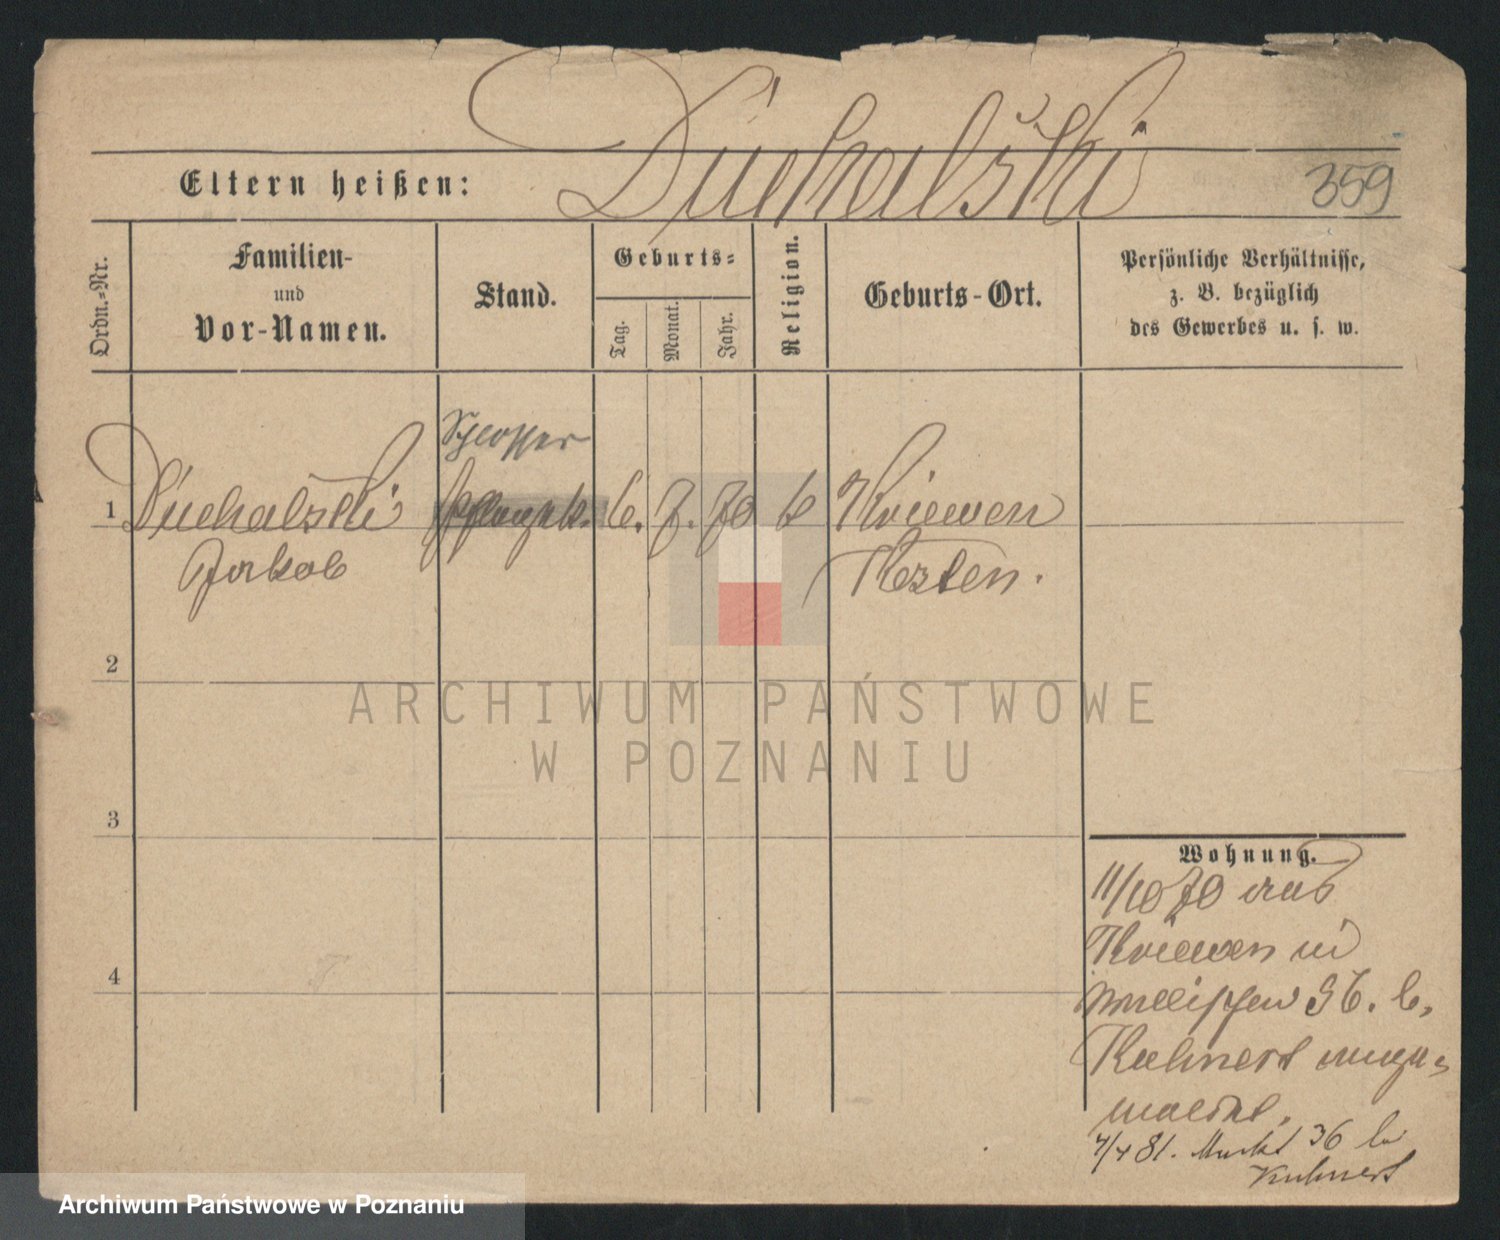 Duchalski
Eltern heißen:
359
Ordn.-Nr.
Familien-
und
Vor-Namen.
Stand.
Geburts-
Tag.
Monat.
Jahr.
Religion.
Geburts-Ort.
Persönliche Verhältnisse,
z. B. bezüglich
des Gewerbes u. s. w.
Schlosser
1 Duchalski 6. 7. 70 k Kriewen
Jakob Kosten.
2
ARCHIWUM PAŃSTWOWE
W POZNANIU
3
Wohnung.
11/10 70 aus
Kriewen in
36. b.
Kuhnert ange-
meldet.
4
4/4 81. Markt 36 b
Kuhnert
Archiwum Państwowe w Poznaniu